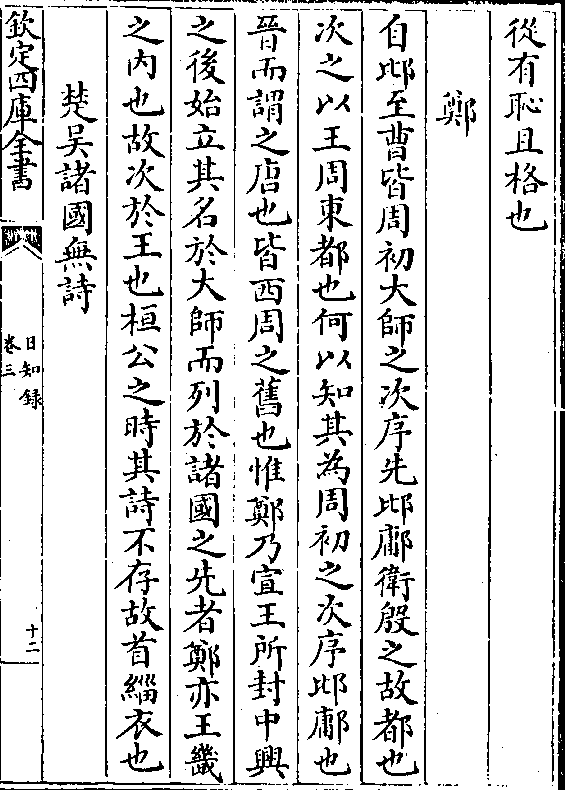 從有恥且格也
鄭
自邶至曹皆周初大師之次序先邶鄘衛殷之故都也
次之以王周東都也何以知其為周初之次序邶鄘也
晉而謂之唐也皆西周之舊也惟鄭乃宣王所封中興
之後始立其名於大師而列於諸國之先者鄭亦王畿
之内也故次於王也桓公之時其詩不存故首緇衣也
楚吳諸國無詩
欽定四庫全書
日知錄
卷三
十二